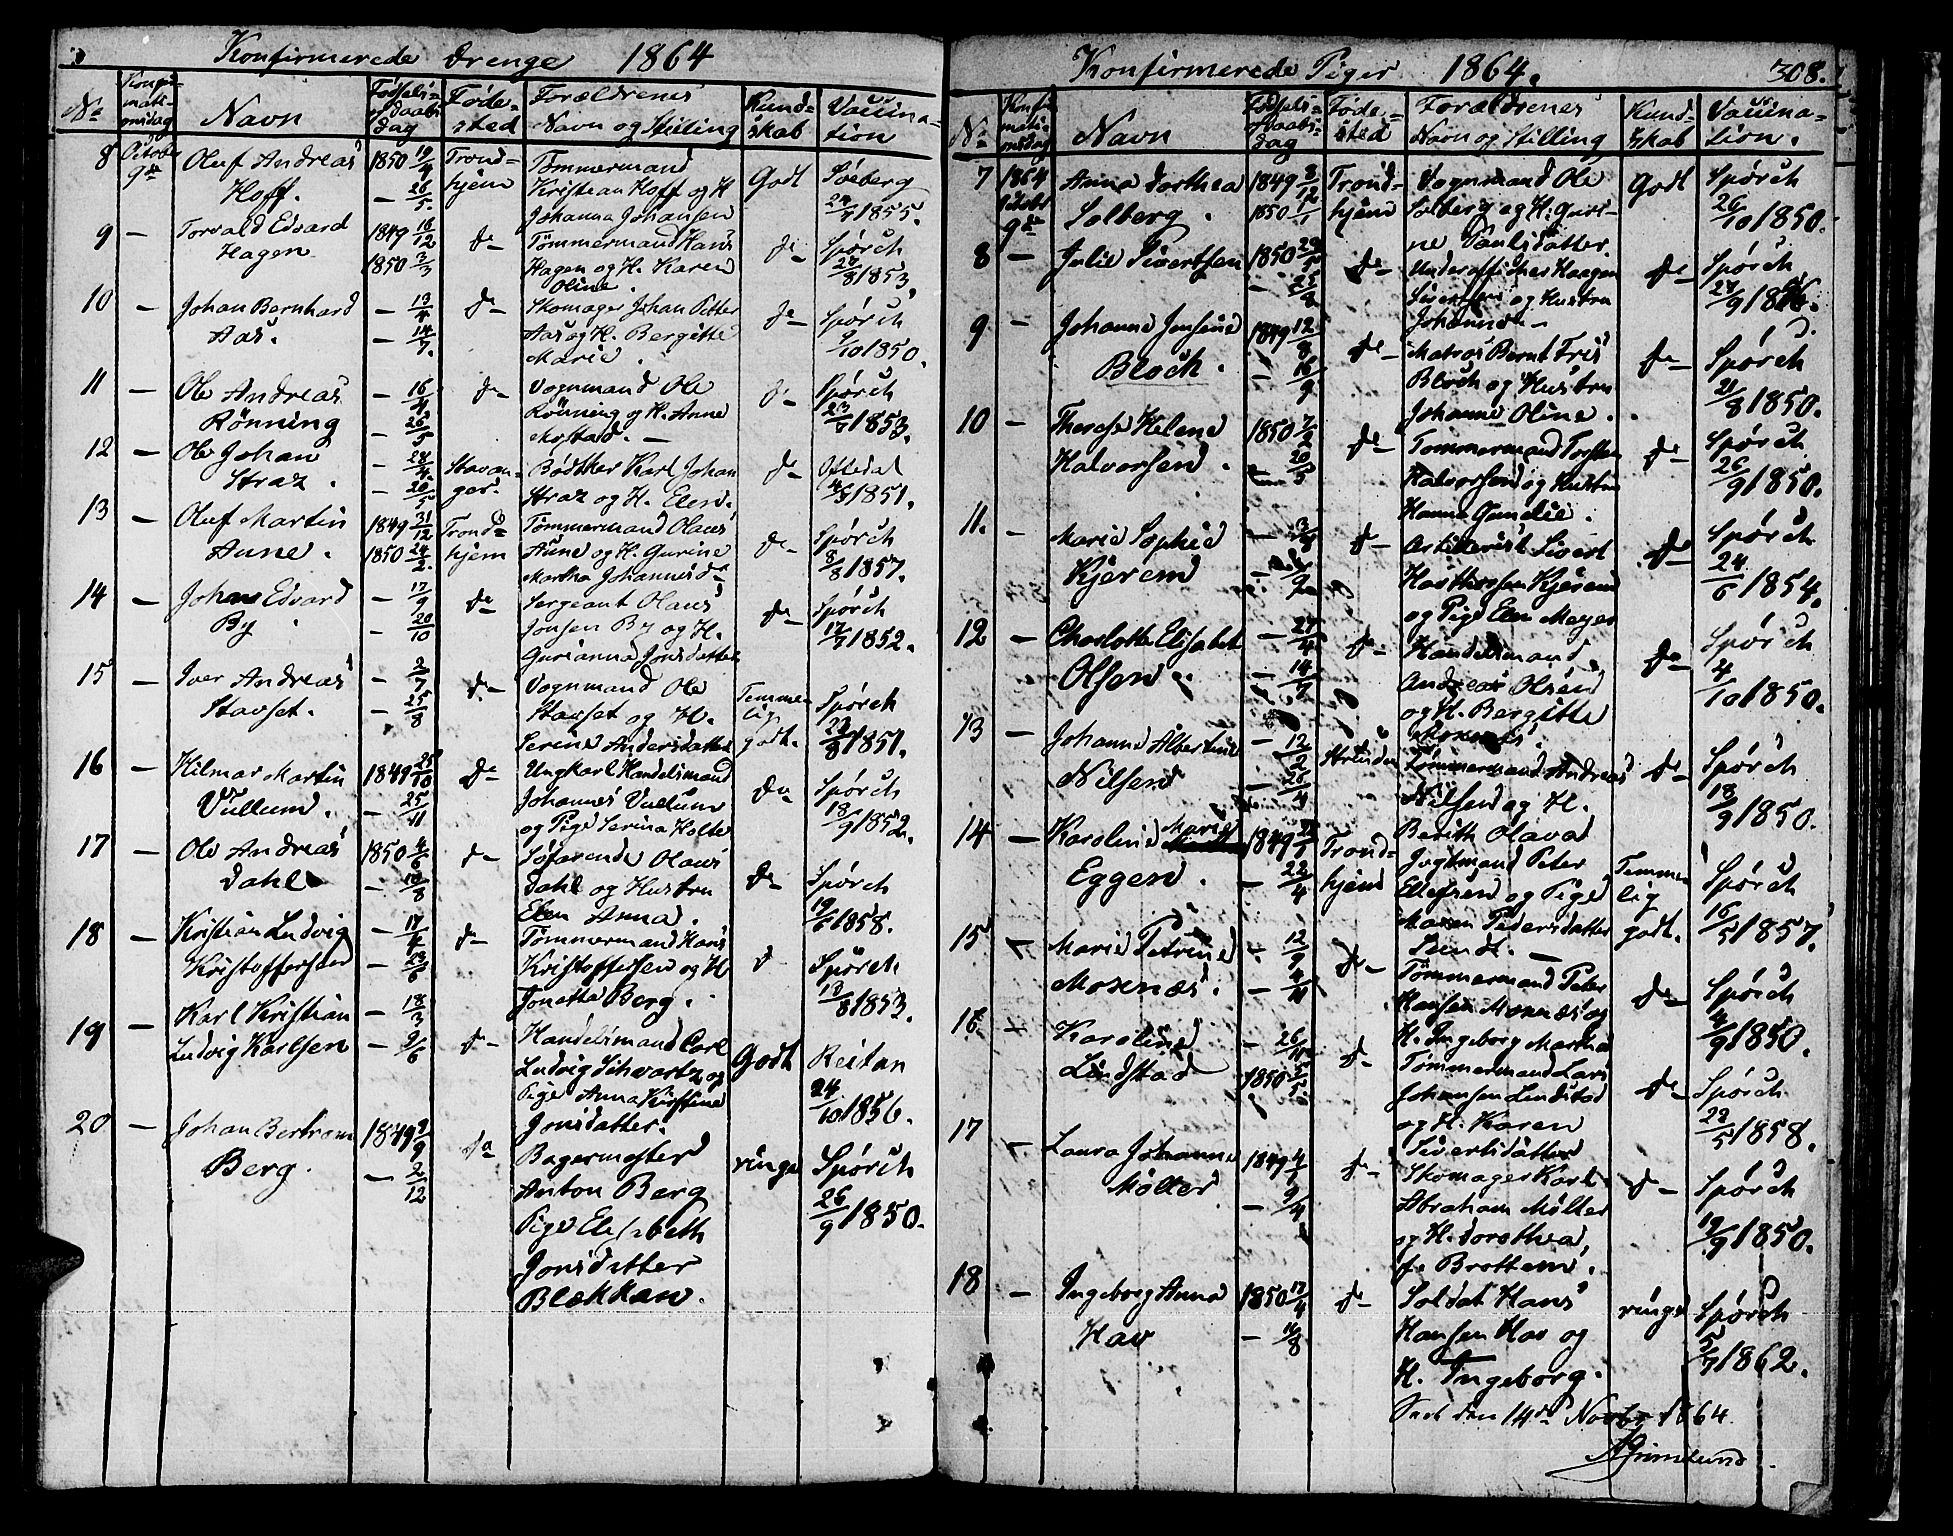 Konfirmerede Drenge 1864
No
Konfirmationsdag
Navn
Fødsels- og Daabsdag
Fødested
Forældrenes Navn og Stilling
Kundskab
Vaccination
8 October 9de Oluf Andreas Hoff. 1850 19/4 - 26/5 Trondhjem Tømmermand Kristian Hoff og H Johanna Johansen Godt Søeberg 1855.
9 - Torvald Edvard Hagen 1849 16/12 1850 3/3 do Tømmermand Hans Hagen og H. Karen Oline. do Spørch 27/8 1853.
10 - Johan Bernhard Aas. - 13/4 - 14/7. do Skomager Johan Petter Aas og H. Bergitte Marie. do Spørch 9/10 1850.
11 - Ole Andreas Rönning - 16/4 - 26/5 do Vognmand Ole Rönning og H. Anne Mostad. - do Spørch 1853.
12 - Ole Johan Straz. - 28/4. - 20/5 Stavanger. Bødtker Karl Johan Straz og H. Elen. do Oftedal 1851.
13 - Oluf Martin Aune. 1849 31/12 1850 24/2. Trondhjem Tømmermand Olaus Aune og H. Gurine Martha Johannesd. do Spørch 8/8 1857.
14 - Johan Edvard By. - 17/9 - 20/10 do Sergeant Olaus Jonsen By og H. Gurianna Jonsdatter do Spørch 17/7 1852.
15 - Iver Andreas Stavset. - 2/7 - 25/8 do Vognmand Ole Stavset og H. Serine Andersdatter Temmelig godt. Spørch 1851.
16 - Hilmar Martin Vullum. 1849 28/10 - 25/11 do Ungkarl Handelsmand Johannes Vullum og Pige Serina Holte do Spørch 18/9 1852.
17 - Ole Andreas Dahl 1850 4/6 - 18/8 do Søfarende Olaus Dahl og Hustru Elen Anna. do Spørch 1858.
18 - Kristian Ludvig Kristoffersen - 17/4 - 23/6 do Tømmermand Hans Kristoffersen og H Jonetta Berg. do Spørch 18/8 1853.
19 - Karl Kristian Ludvig Karlsen - 18/3 - 9/6 do Handelsmand Carl Ludvig Schwartz og Pige Anna Kirstine Jonsdatter. Godt Reitan 24/10 1856.
20 - Johan Bertram Berg. 1849 9/9 - 2/12 do Bagermester Anton Berg Pige Elisabeth Jonsdatter Blekkan. ringe Spørch 26/9 1850.
Konfirmerede Piger 1864. 308.
No
Konfirmationsdag
Navn
Fødsels- og Daabsdag
Fødested
Forældrenes Navn og Stilling
Kundskab
Vaccination.
7 1864 October 9de Anna Dorthea Solberg. 1849 8/12 1850 Trondhjem Vognmand Ole Solberg og H. Gurine Paulsdatter. Godt Spørch 26/10 1850.
8 - Julie Sivertsen 1850 - 25/8 do Underofficher Haagen Sivertsen og Hustru Johanna - do Spørch
9 - Johanne Jensine Bloch. 1849 12/8 - 16/9 do Matros Bernt Fris Bloch og Hustru Johanne Oline. do Spørch 21/8 1850.
10 - Therese Helene Halvorsen. 1850 7/2 do Tømmermand Torsten Halvorsen og Hustru Hanna Gundie. do Spørch 26/9 1850.
11. - Marie Sophie Kjerem do Artillerist Sivert Kjerem og Pige Elen Meyer do Spørch 24/6 1854.
12 - Charlotte Elisabet Olsen - 27/4 - 14/7 do Handelsmand Andreas Olsen og H. Bergitte do Spørch 4/10 1850.
13 - Johanne Albertine Nilsen - 12/2 - 26/4 Tømmermand Andreas Nilsen og H. Berith Olava do Spørch 18/9 1850.
14 - Karoline Marie Eggen. 1849 - 22/4 Trondhjem Jagtmand Peter Ellefsen og Pige Maren Pedersdatter Lund. - Temmelig godt. Spørch 16/5 1857.
15 - Marie Petrine Moxnæs. - 12/9 - 4/11 do Tømmermand Peter Hansen Moxnæs og H. Ingeborg Martha do Spørch 4/9 1850.
16. - Karoline Lindstad - 26/10 1850 do Tømmermand Lars Johansen Lindstad og H. Karen Sivertsdatter do Spørch 29/5 1858.
17 - Laura Johanne Møller 1849 4/1 - 9/4 do Skomager Karl Abraham Møller og H. Dorothea, f. Brottem. do Spørch 19/9 1850.
18 - Ingeborg Anna Hav 1850 17/4 - 11/8 do Soldat Hans Hansen Hav og H. Ingeborg. ringe Spørch 5/7 1862.
Seet den 14de Novbr 1864
AGrimelund.